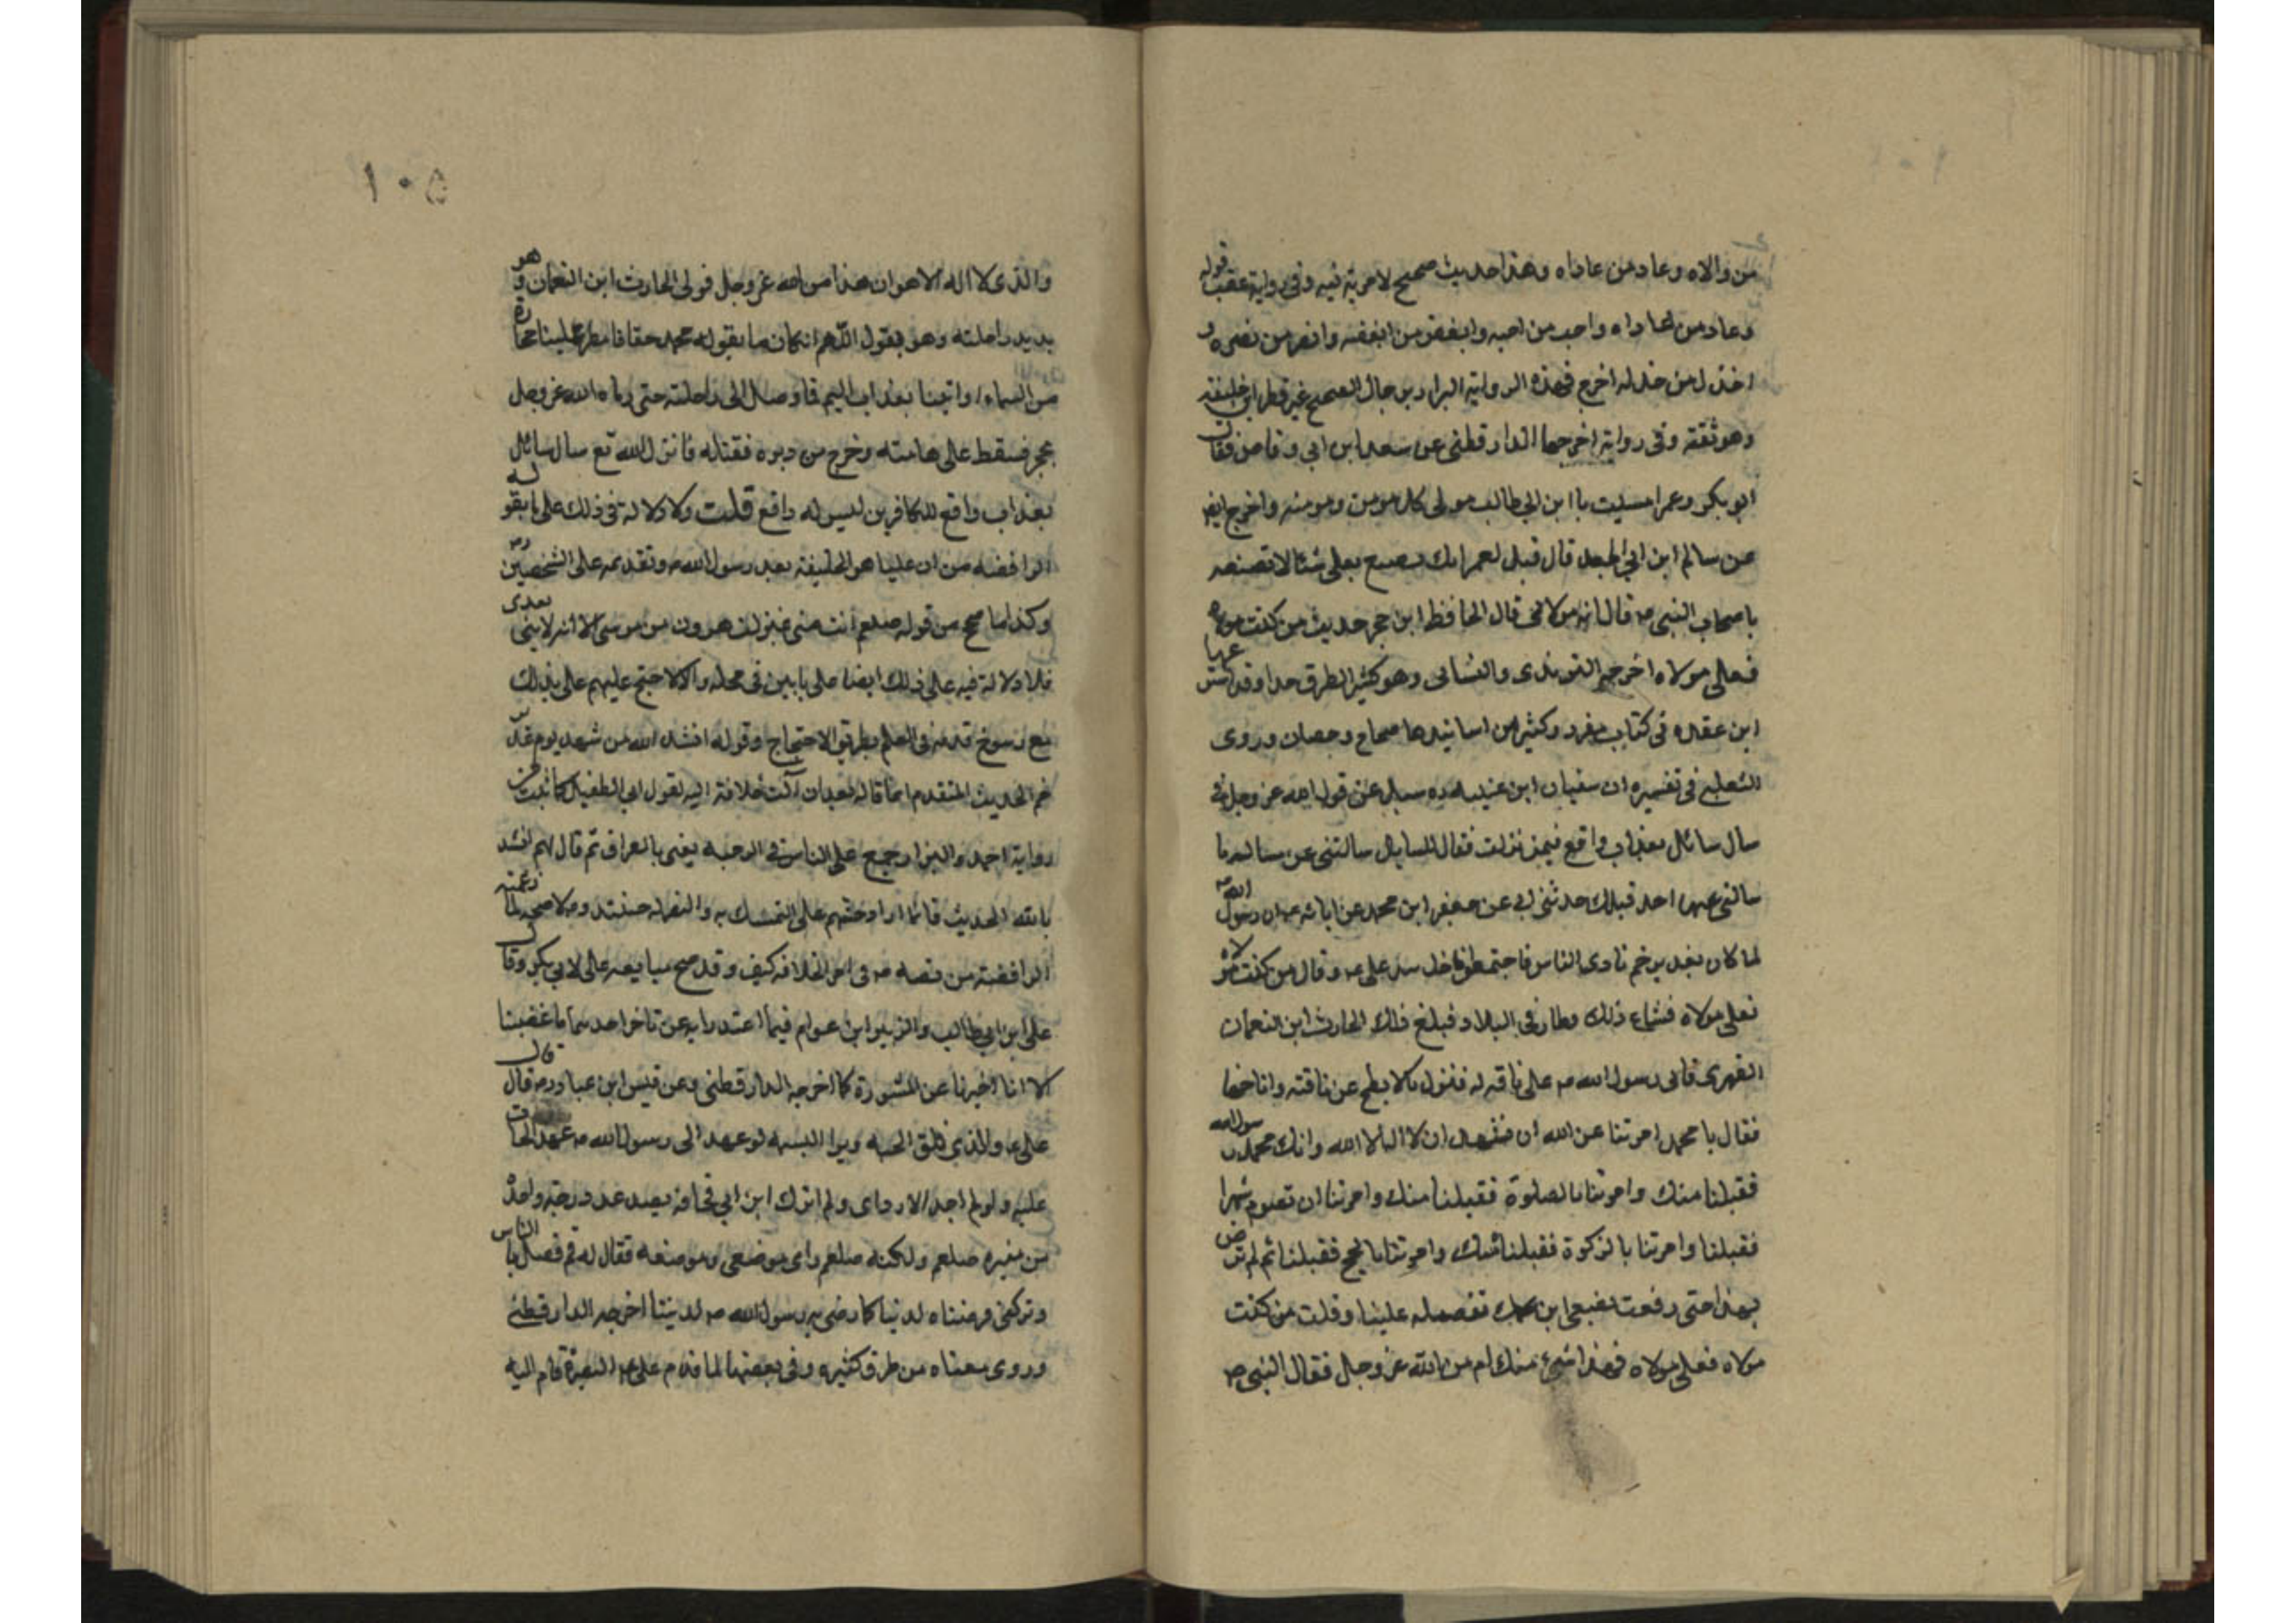 من والاه وعاد من عاداه وهذا حديث صحيح لا مرية فيه وفى رواية عقب قوله
وعاد من عاداه واحب من احبه وابغض من ابغضه وانصر من نصره و
اخذل من خذله اخرج هذه الرواية البزار برجال الصحيح غير فطر ابن خليفة
وهو ثقة وفى رواية اخرجها الدارقطنى عن سعد ابن ابي وقاص فقال
ابو بكر وعمر امسيت يا ابن ابي طالب مولى كل مومن ومومنه واخرج ايضا
عن سالم ابن ابي الجعد قال قيل لعمر انك تصنع بعلى شئا لا تصنعه
باصحاب النبى ص قال انه مولاى قال الحافظ ابن حجر حديث من كنت مولاه
فعلى مولاه اخرجه الترمذى والنسائى وهو كثير الطرق جدا وقد استوعبها
ابن عقده فى كتاب مفرد وكثير من اسانيدها صحاح وحسان وروى
الثعلبى فى تفسيره ان سفيان ابن عيينه سيل عن قول الله عز وجل
سال سائل بعذاب واقع فيمن نزلت فقال للسايل سالتنى عن مساله ما
سالنى عنها احد قبلك حدثنى ابى عن جعفر ابن محمد عن ابائه ان رسول الله ص
لما كان بغدير خم نادى الناس فاجتمعوا فاخذ بيد على ع وقال من كنت مولاه
فعلى مولاه فشاع ذلك وطار فى البلاد فبلغ ذلك الحارث ابن النعمان
الفهرى فاتى رسول الله ص على ناقه له فنزل بالابطح عن ناقته واناخها
فقال يا محمد امرتنا عن الله ان نشهد ان لا اله الا الله وانك محمد رسول الله
فقبلنا منك وامرتنا بالصلوة فقبلنا منك وامرتنا ان نصوم شهرا
فقبلنا وامرتنا بالزكوة فقبلنا منك وامرتنا بالحج فقبلنا ثم لم ترض
بهذا حتى رفعت بضبعى ابن عمك تفضله علينا وقلت من كنت
مولاه فعلى مولاه فهذا شئ منك ام من الله عز وجل فقال النبى ص
١٠٥
والذى لا اله الا هو ان هذا من الله عز وجل فولى الحارث ابن النعمان وهو
يريد راحلته وهو يقول اللهم ان كان ما يقوله محمد حقا فامطر علينا حجارة
من السماء او اتينا بعذاب اليم فما وصل الى راحلته حتى رماه الله عز وجل
بحجر فسقط على هامته وخرج من دبره فقتله فانزل الله تع سال سائل
بعذاب واقع للكافرين ليس له دافع قلت ولا دلاله فى ذلك على ما يقوله
الرافضه من ان عليا هو الخليفة بعد رسول الله ص وتقدمه على الشخصين
وكذا ما صح من قوله صلعم انت منى بمنزلت هرون من موسى الا انه لا نبى بعدى
فلا دلالة فيه على ذلك ايضا على ما بين فى محله والا لاحتج عليهم على بذلك
مع رسوخ قدمه فى العلم بطريق الاحتجاج وقوله انشد الله من شهد يوم غدير
خم الحديث المتقدم انما قاله بعد ان آلت خلافة اليه لقول ابى الطفيل كما ثبت فى
رواية احمد والبزار جمع على الناس فى الرحبه يعنى بالعراق ثم قال لهم انشد
بالله الحديث فانما اراد حثهم على التمسك به والنصر له حينئذ ولا صحة لما زعمته
الرافضة من نصه ص فى امر الخلافه كيف وقد صح مبايعه على لابى بكر وقال
على ابن ابي طالب والزبير ابن عوام فيما اعتذرا به عن تاخر احد ما غضبنا
الا انا اخرنا عن المشورة كما اخرجه الدارقطنى وعن قيس ابن عباد قال قال
على ع والذى فلق الحبه وبرا النسمه لو عهد الى رسول الله ص عهدا لجالدت
عليه ولو لم اجد الا رداى ولم اترك ابن ابي قحافة يصعد درجة واحدة
من منبره صلعم ولكنه صلعم راى موضعى وموضعه فقال له قم فصل بالناس
وتركنى فرضيناه لدنيانا كما رضى به رسول الله ص لديننا اخرجه الدارقطنى
وروى معناه من طرق كثيره وفى بعضها لما قدم على ع البصرة قام اليه